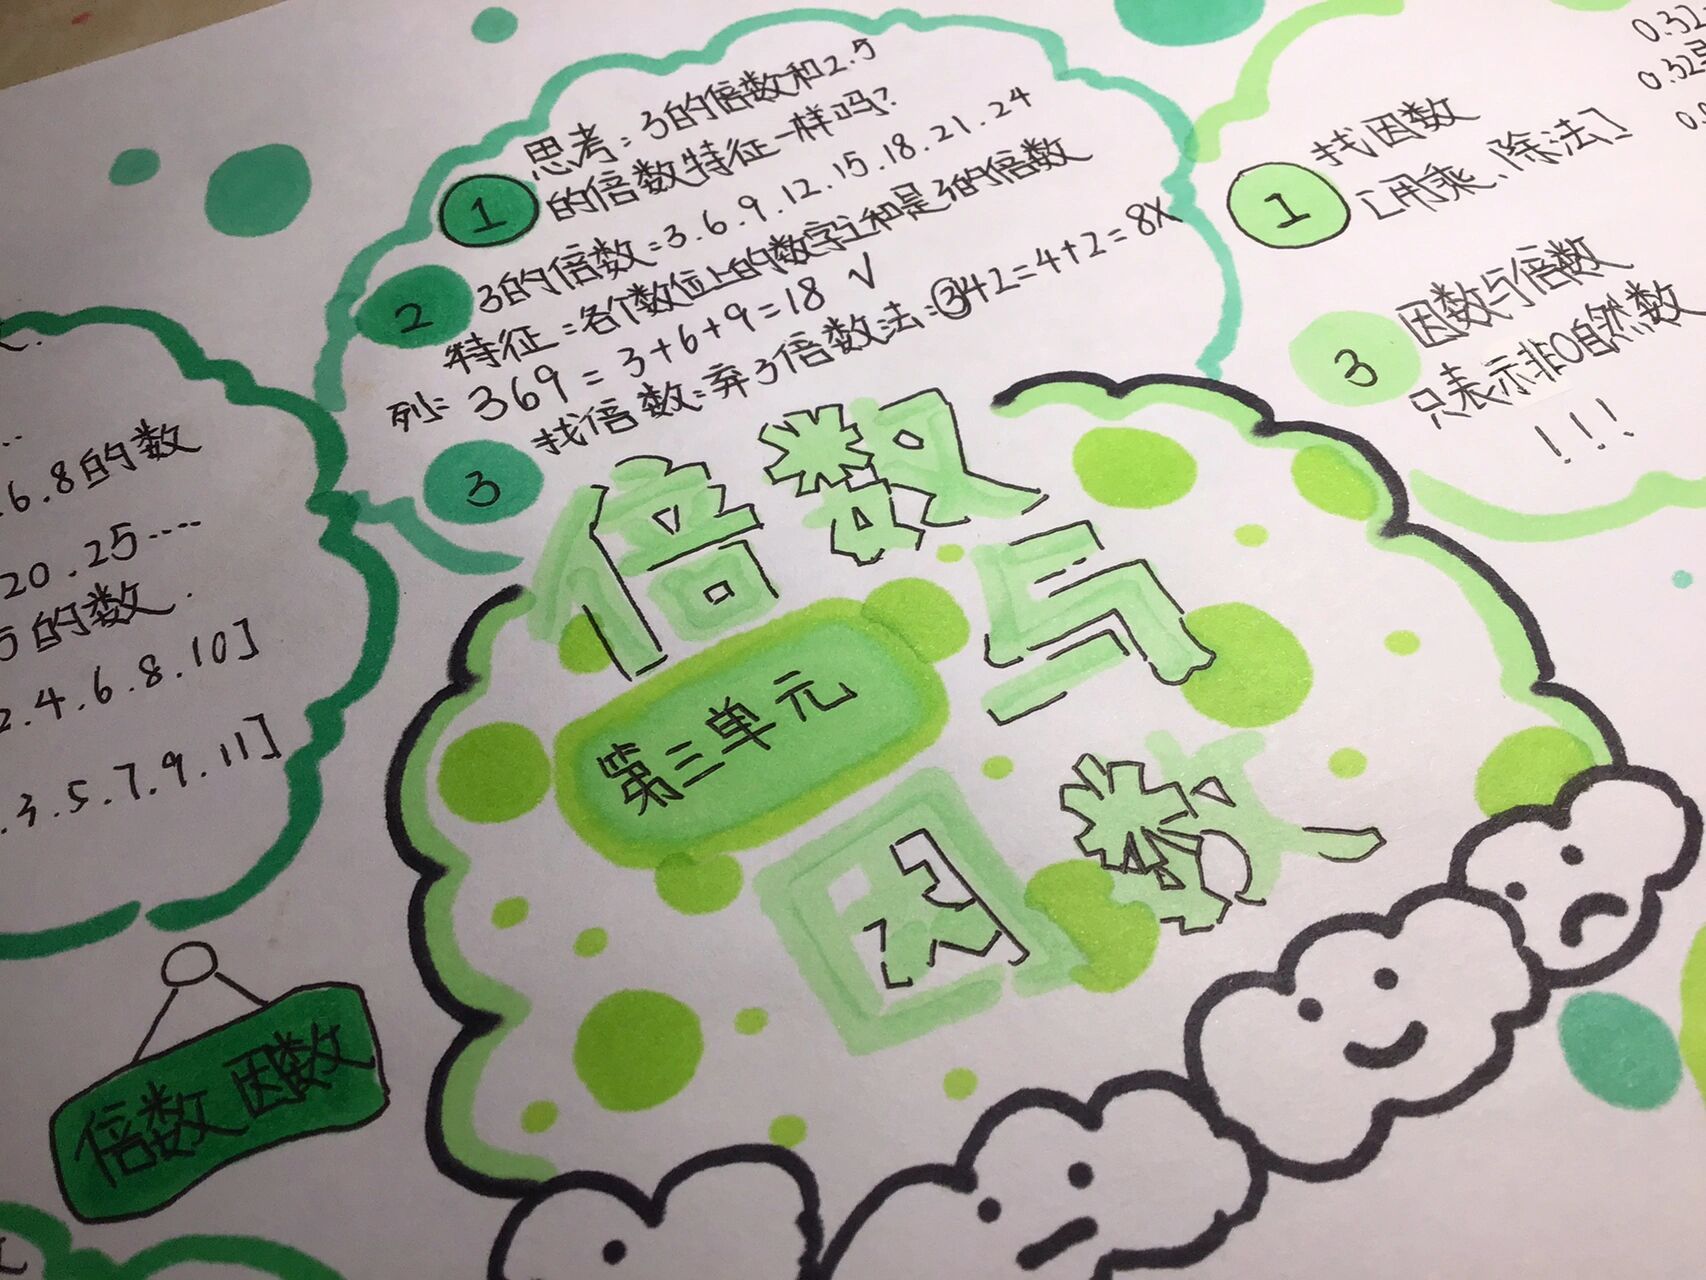 思考：3的倍数和2.5
1 的倍数特征一样吗？
2 3的倍数=3.6.9.12.15.18.21.24
特征=各个数位上的数字之和是3的倍数
列：369=3+6+9=18 √
3 找倍数：弃3倍数法：③42=4+2=8X
.6.8的数
20.25....
5的数.
2.4.6.8.10]
.3.5.7.9.11]
1 找因数
[用乘、除法]
3 因数与倍数
只表示非0自然数
!!!
0.32
倍数
与
第三单元
因数
倍数 因数